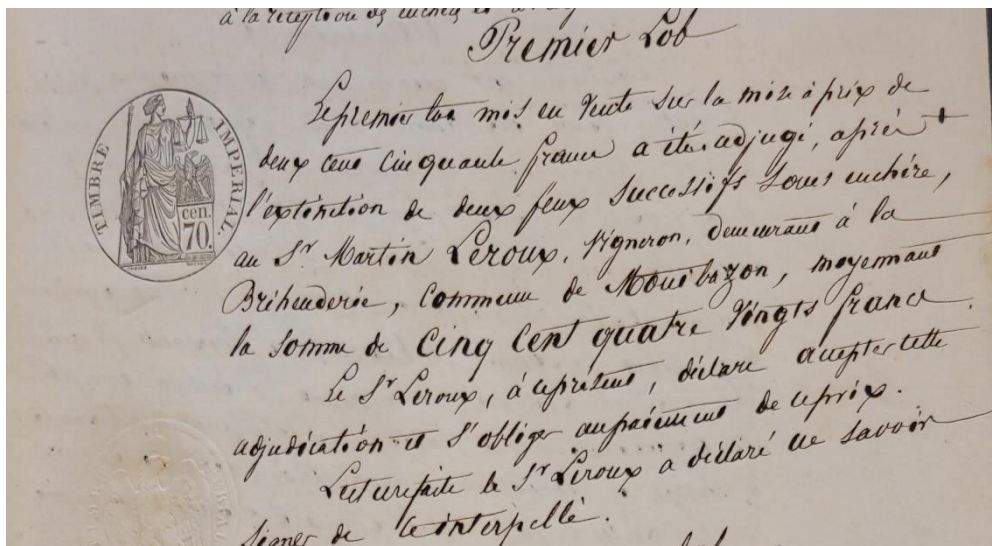 à la réception des enchères et
Premier Lot
Le premier lot mis en vente sur la mise à prix de
deux cent cinquante francs a été adjugé, après
l'extinction de deux feux successifs sans enchère,
au Sr Martin Leroux, vigneron, demeurant à la
commune de Montbazon, moyennant
la somme de Cinq Cent quatre Vingts francs.
Le Sr Leroux, à ce présent, déclare accepter cette
adjudication et s'obliger au paiement de ce prix.
Lecture faite le Sr Leroux a déclaré ne savoir
signer de ce interpellé.
TIMBRE IMPERIAL.
cen.
70.